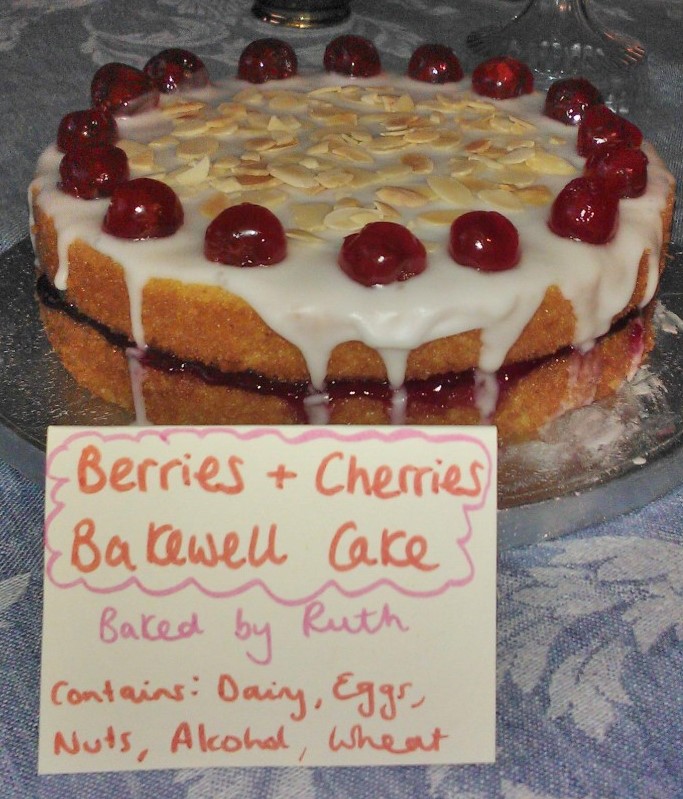 Berries + Cherries
Bakewell Cake
Baked by Ruth
Contains: Dairy, Eggs,
Nuts, Alcohol, Wheat